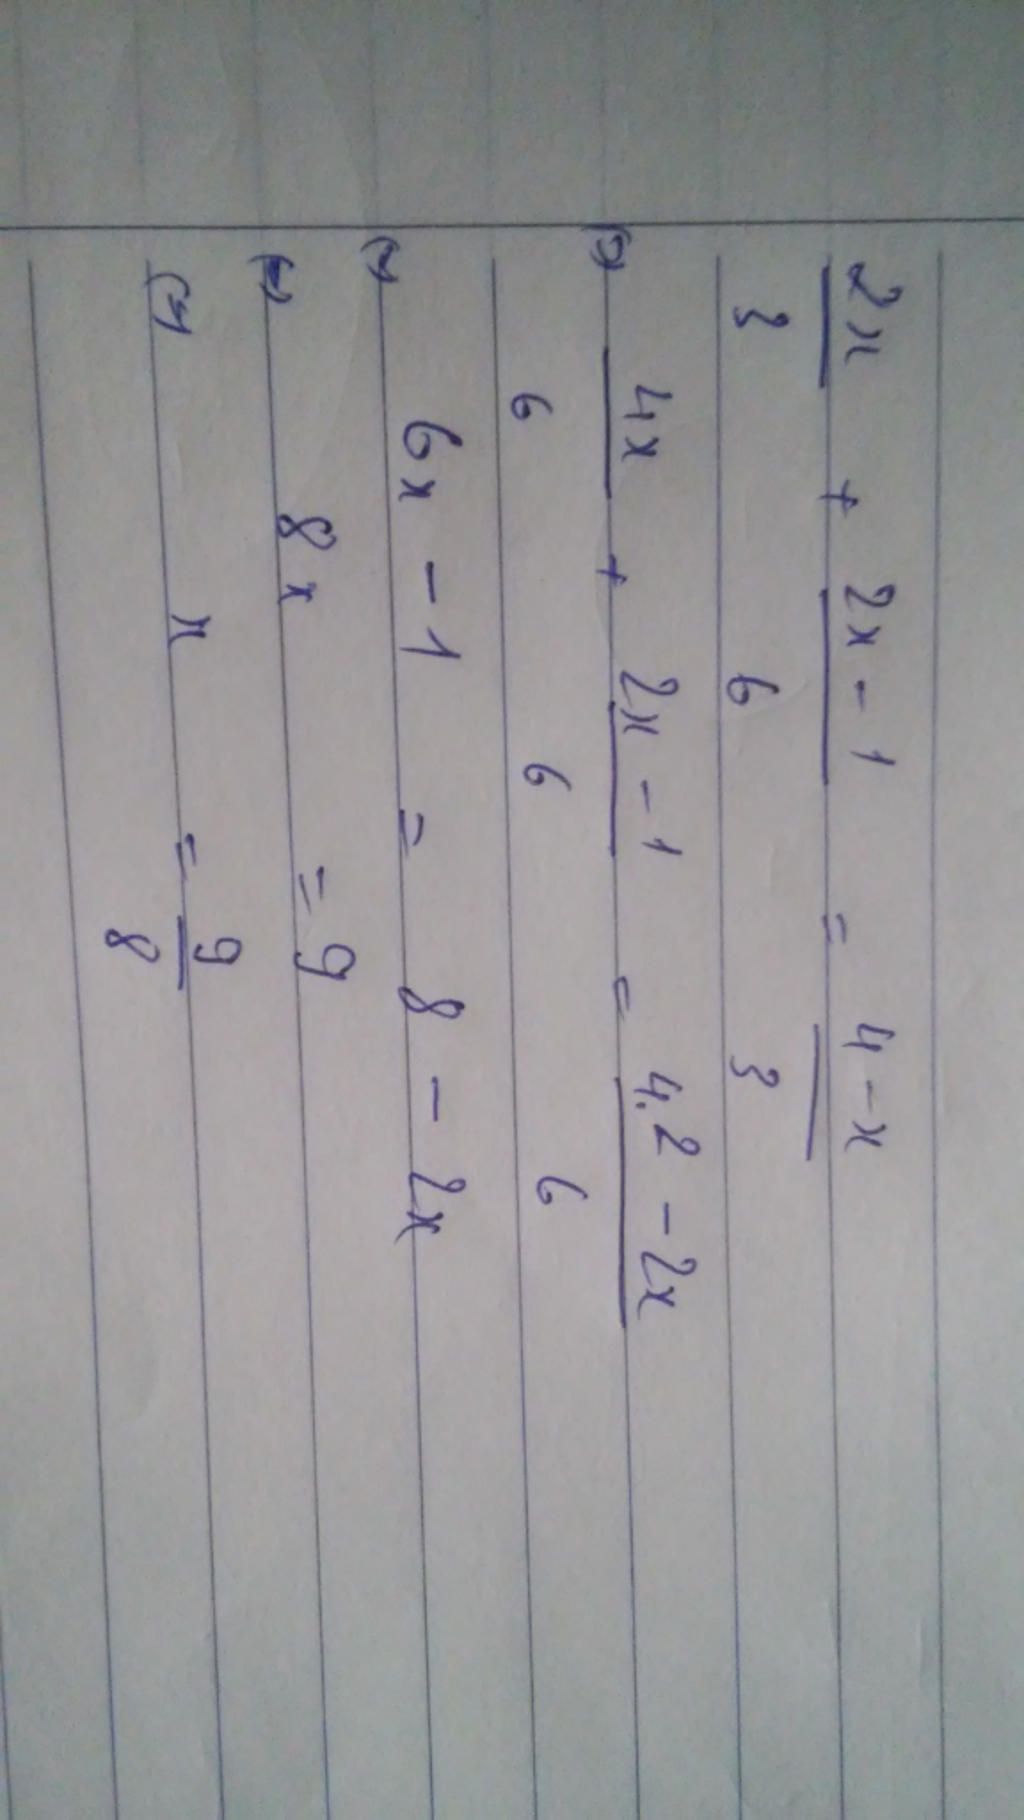 2x/3 + 2x - 1/6 = 4 - x/3
(=) 4x/6 + 2x - 1/6 = 4.2 - 2x/6
(=) 6x - 1 = 8 - 2x
(=) 8x = 9
(=) x = 9/8